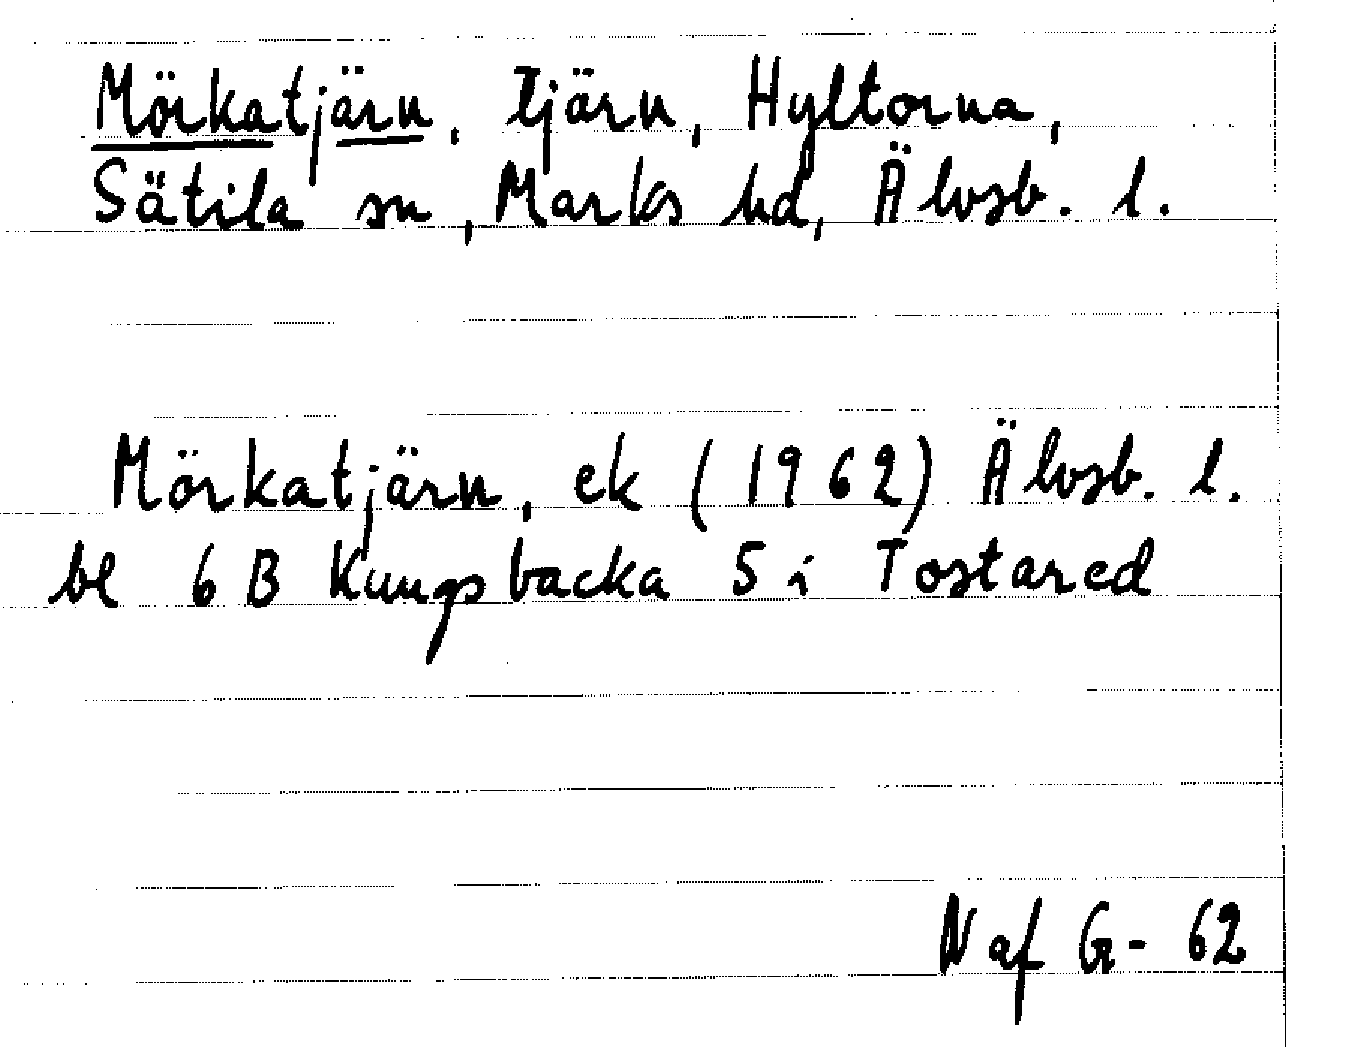 Mörkatjärn, Tjärn, Hyltorna,
Sätila sn, Marks hd, Älvsb. l.
Mörkatjärn, ek (1962) Älvsb. l.
bl 6 B Kungsbacka 5 i Tostared
N af G - 62